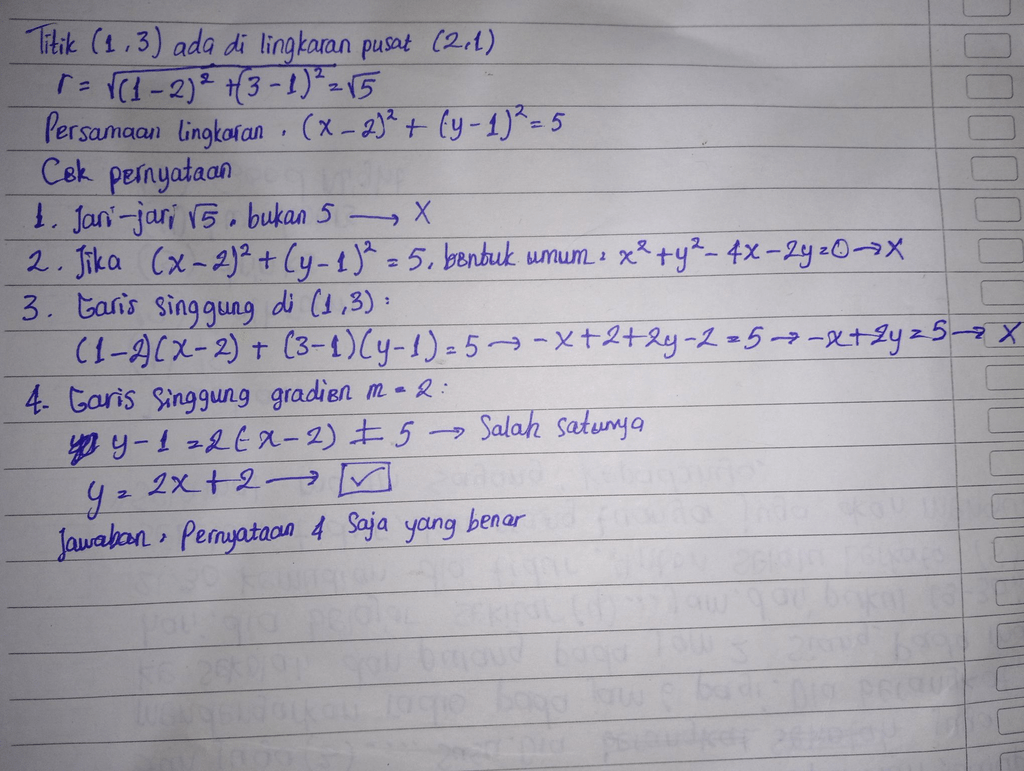 Titik (1,3) ada di lingkaran pusat (2,1)
r = √(1-2)² + (3-1)² = √5
Persamaan lingkaran : (x-2)² + (y-1)² = 5
Cek pernyataan
1. Jari-jari √5, bukan 5 → X
2. Jika (x-2)² + (y-1)² = 5, bentuk umum : x² + y² - 4x - 2y = 0 → X
3. Garis singgung di (1,3) :
(1-2)(x-2) + (3-1)(y-1) = 5 → -x+2+2y-2 = 5 → -x+2y = 5 → X
4. Garis singgung gradien m = 2 :
y-1 = 2(-x-2) ± 5 → Salah satunya
y = 2x + 2 → ☑
Jawaban : Pernyataan 4 Saja yang benar